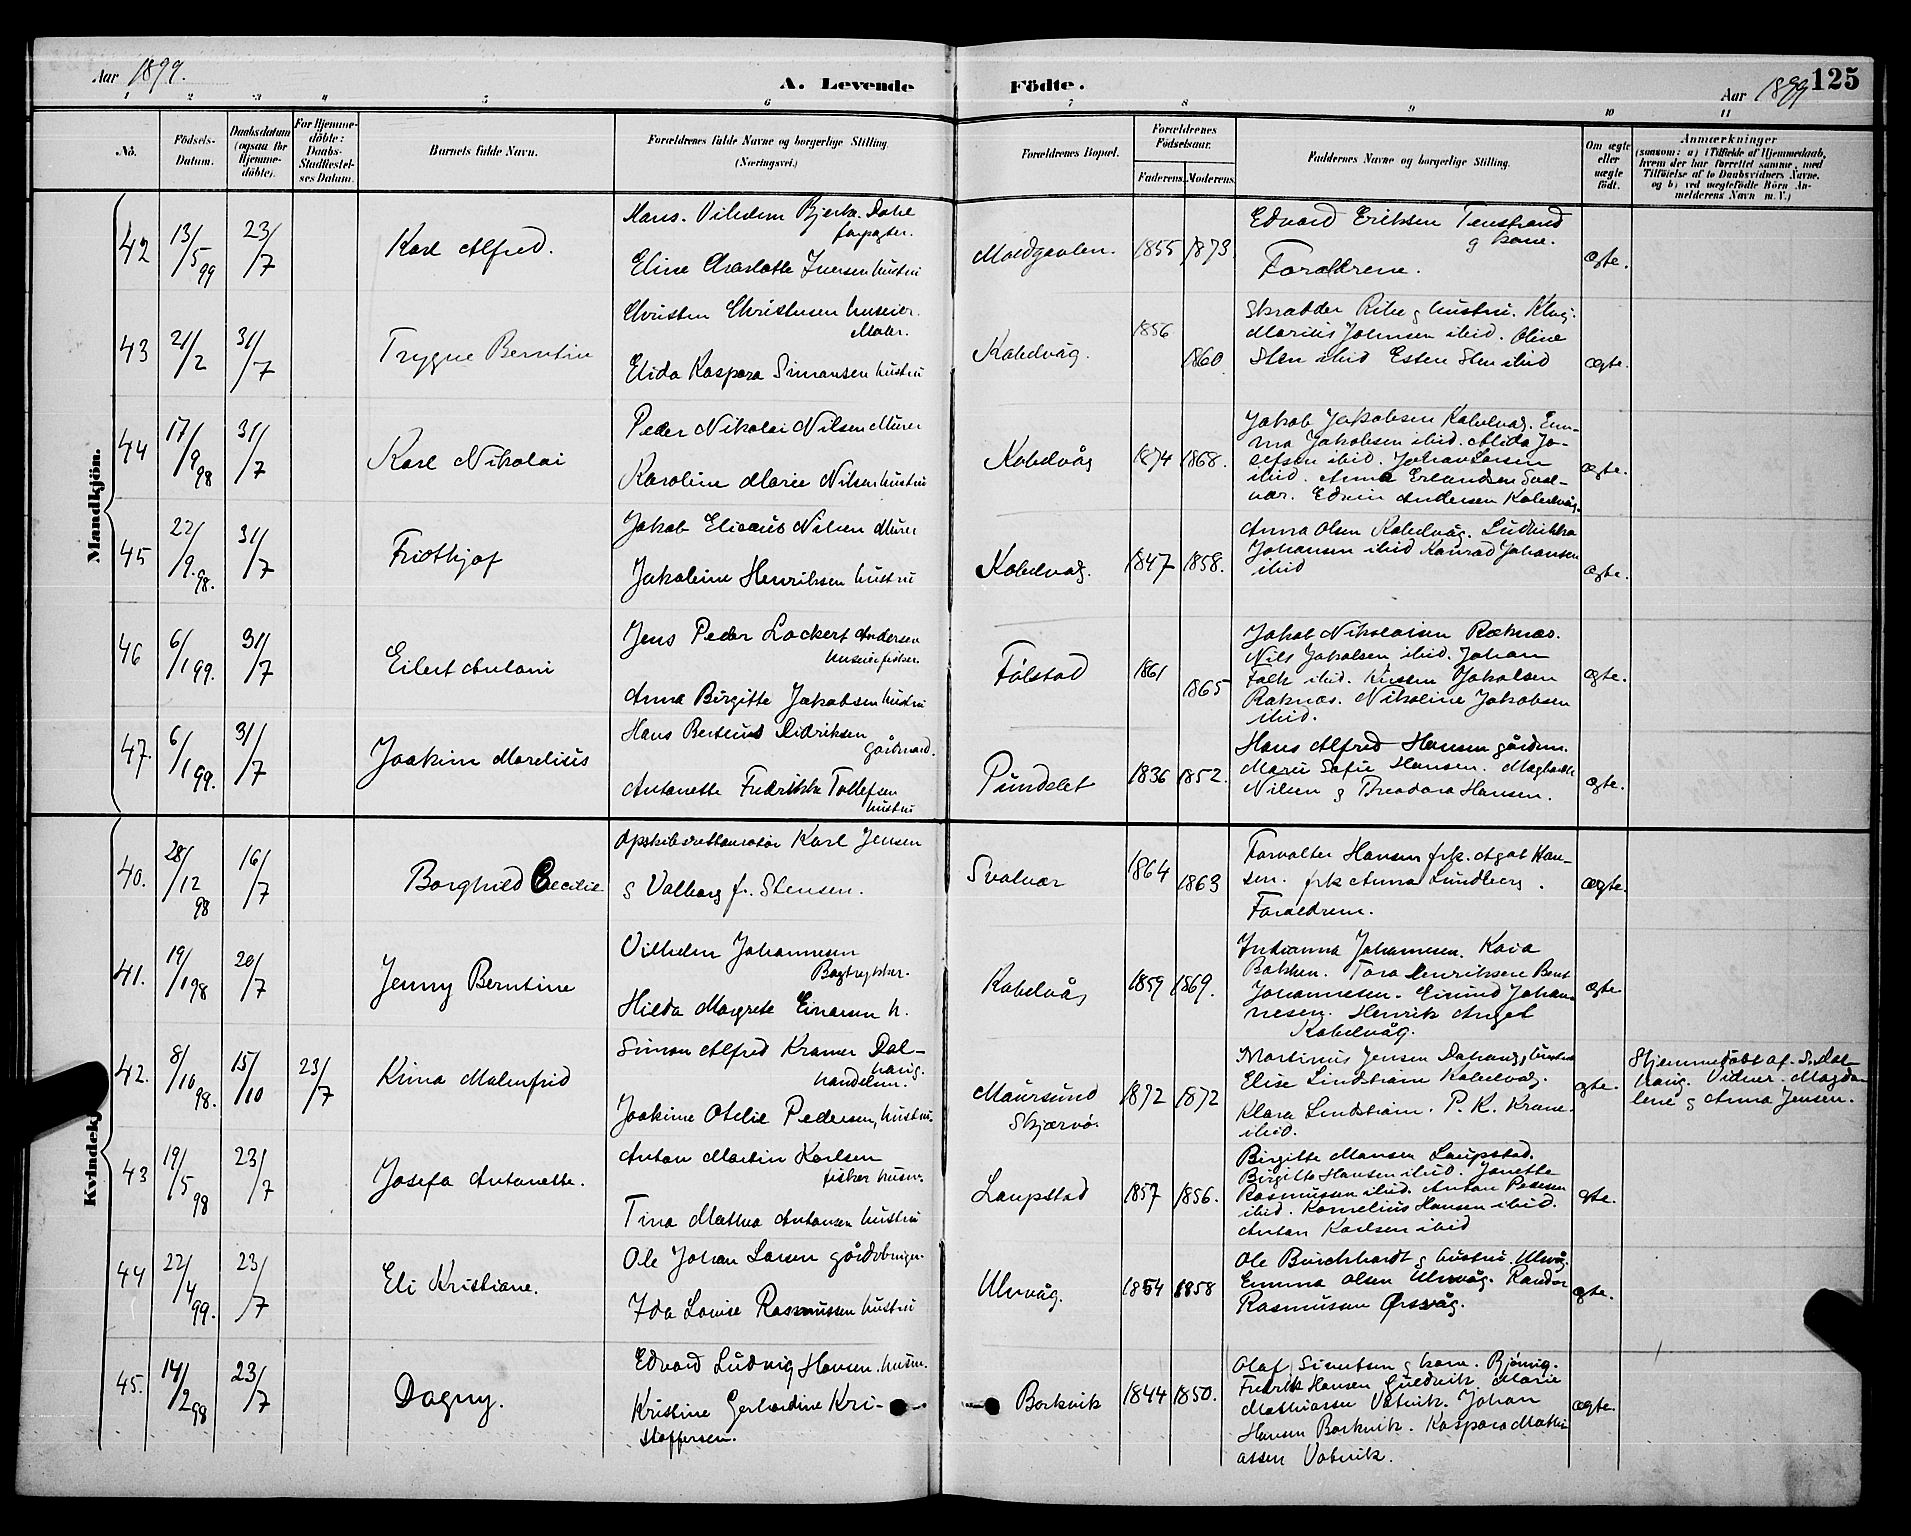 Aar 1899.
A. Levende Födte.
Aar 1899
125
1 2 3 4 5 6 7 8 9 10 11
No.
Födsels-Datum.
Daabsdatum (ogsaa for Hjemme-döbte).
For Hjemme-döbte: Daabs-Stadfæstel-ses Datum.
Barnets fulde Navn.
Forældrenes fulde Navne og borgerlige Stilling
(Næringsvei.)
Forældrenes Bopæl.
Forældrenes Födselsaar.
Faderens. Moderens.
Faddernes Navne og borgerlige Stilling.
Om ægte eller uægte födt.
Anmærkninger
(saasom: a) i Tilfælde af Hjemmedaab,
hvem der har forrettet samme, med
Tilföielse af to Daabsvidners Navne.
og b) ved uægtefödte Börn An-
melderens Navn m. V.)
Mandkjön.
42 13/5 99 23/7
Karl Alfred.
Hans. Vilhelm Bjerk. Dahl
forpagter.
Eline Charlotte Iversen hustru
Moldgavlen. 1855 1873
Edvard Eriksen Tenstrand
g kone.
Forældrene.
ægte.
43 21/2 31/7
Trygve Berntin
Christen Christensen huseier.
Maler.
Elida Kaspara Simonsen hustru
Kabelvåg. 1856 1860.
Skrædder Ribe g hustru. Kbvg.
Marius Johnsen ibid. Oline
Sten ibid Esten Sten ibid
ægte.
44 17/9 98 31/7
Karl Nikolai
Peder Nikolai Nilsen Murer
Karoline Marie Nilsen hustru
Kabelvåg 1874 1868.
Jakob Jakobsen Kabelvåg. Em-
ma Jakobsen ibid. Alida Jo-
sefsen ibid. Johan Larsen
ibid. Anna Erlandsen Svol-
vær. Edvin Andersen Kabelvåg.
ægte.
45 22/9. 98. 31/7
Fridthjof
Jakob Elisæus Nilsen Murer
Jakobine Henriksen hustru
Kabelvåg. 1847 1858.
Anna Olsen Kabelvåg. Ludvikka
Johansen ibid Konrad Johansen
ibid
ægte.
46 6/1 99. 31/7
Eilert Antoni
Jens Peder Lockert Andersen
huseier fisker.
Anna Birgitte Jakobsen hustru
Fölstad 1861 1865
Jakob Nikolaisen Ræknæs.
Nils Jakobsen ibid. Johan
Falk ibid. Jakobsen
Raknæs. Nikoline Jakobsen
ibid.
ægte.
47. 6/1 99. 31/7
Joakim Marelius
Hans Berteus Didriksen
gårdmand.
Antonette Fredrikke Tollefsen
hustru
Pundslet 1836 1852.
Hans Alfred Hansen gårdm.
Marie Sofie Hansen.
Nilsen g Theodora Hansen.
ægte.
Kvindekj
40. 28/12 98 16/7
Borghild Cecilie
Karl Jensen
g Valborg f. Stensen.
Svolvær 1864 1863
Forvalter Hansen frk. Agot Han-
sen. frk Anna Lundberg.
Forældrene.
ægte.
41. 19/1 98 20/7
Jenny Berntine
Vilhelm Johannesen
Bogtrykker.
Hilda Margrete Einarsen h.
Kabelvåg 1859 1869.
Indianna Johannesen. Kaia
Bakken. Tora Henriksen Bent
Johannesen. Eivind Johan-
nesen. Henrik Angel
Kabelvåg.
ægte
42. 8/10 98. 15/10 23/7
Kima Malmfrid
Simon Alfred Kramer Dal-
haug.
handelsm.
Joakime Otelie Pedersen, hustru.
Maursund
Skjærvö. 1872 1872
Martinus Jensen Dahaug g hustru
Elise Lindstrøm Kabelvåg.
Klara Lindstrøm. P. K. Krane.
ibid.
ægte.
Hjemmedöbt af S. Dal-
haug. Vidner. Magda-
lene g Anna Jensen.
43 19/5 98 23/7
Josefa Antonette.
Anton Martin Karlsen
fisker husm.
Tina Mathea Antonsen hustru
Laupstad 1857 1856.
Birgitte Monsen Laupstad.
Birgitte Hansen ibid. Janetta
Rasmussen ibid. Anton Pedersen
ibid. Kornelius Hansen ibid.
Anton Karlsen ibid
ægte.
44 22/4 99. 23/7
Eli Kristiane.
Ole Johan Larsen gårdbruger
Ida Louise Rasmussen hustru
Ulvåg. 1854 1858
Ole Burchhardt g hustru. Ulvåg.
Emma Olsen Ulvåg. Randor
Rasmussen Ørsvåg.
ægte.
45. 14/2 98 23/7
Dagny.
Edvard Ludvig Hansen. husm.
Kristine Gerhardine Kri-
stoffersen.
Borkvik 1844 1850.
Olaf Sivertsen g kone. Bjørvig.
Fredrik Hansen Guldvik Marie
Mathiassen Vatvik. Johan
Hansen Borkvik. Kaspara Mathi
assen Vatvik.
ægte.